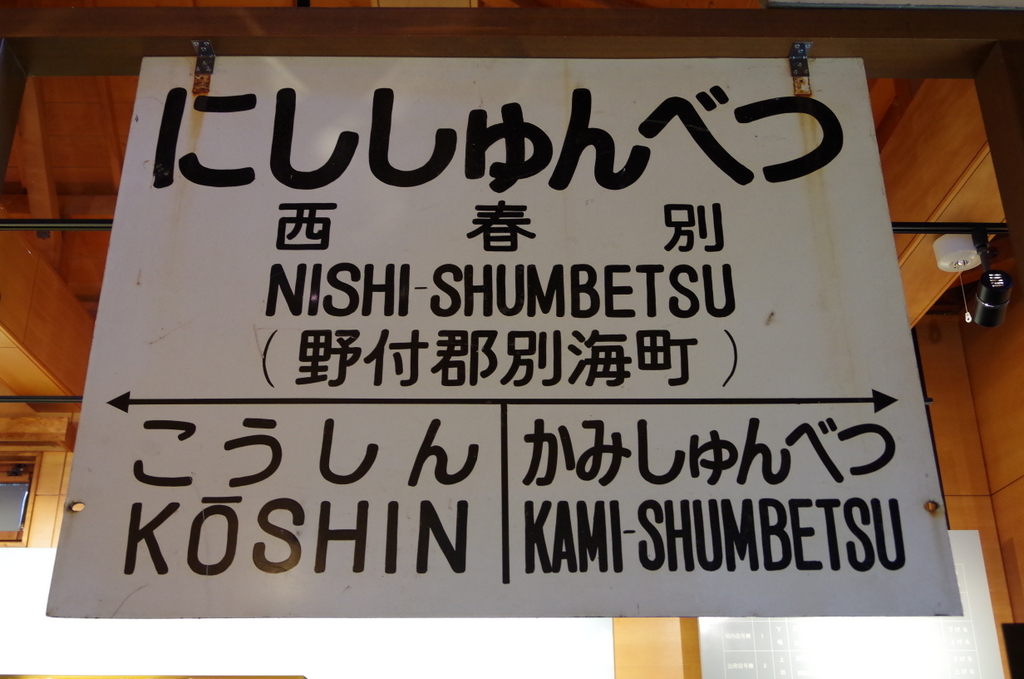 にししゅんべつ
西春別
NISHI-SHUMBETSU
(野付郡別海町)
こうしん かみしゅんべつ
KŌSHIN KAMI-SHUMBETSU